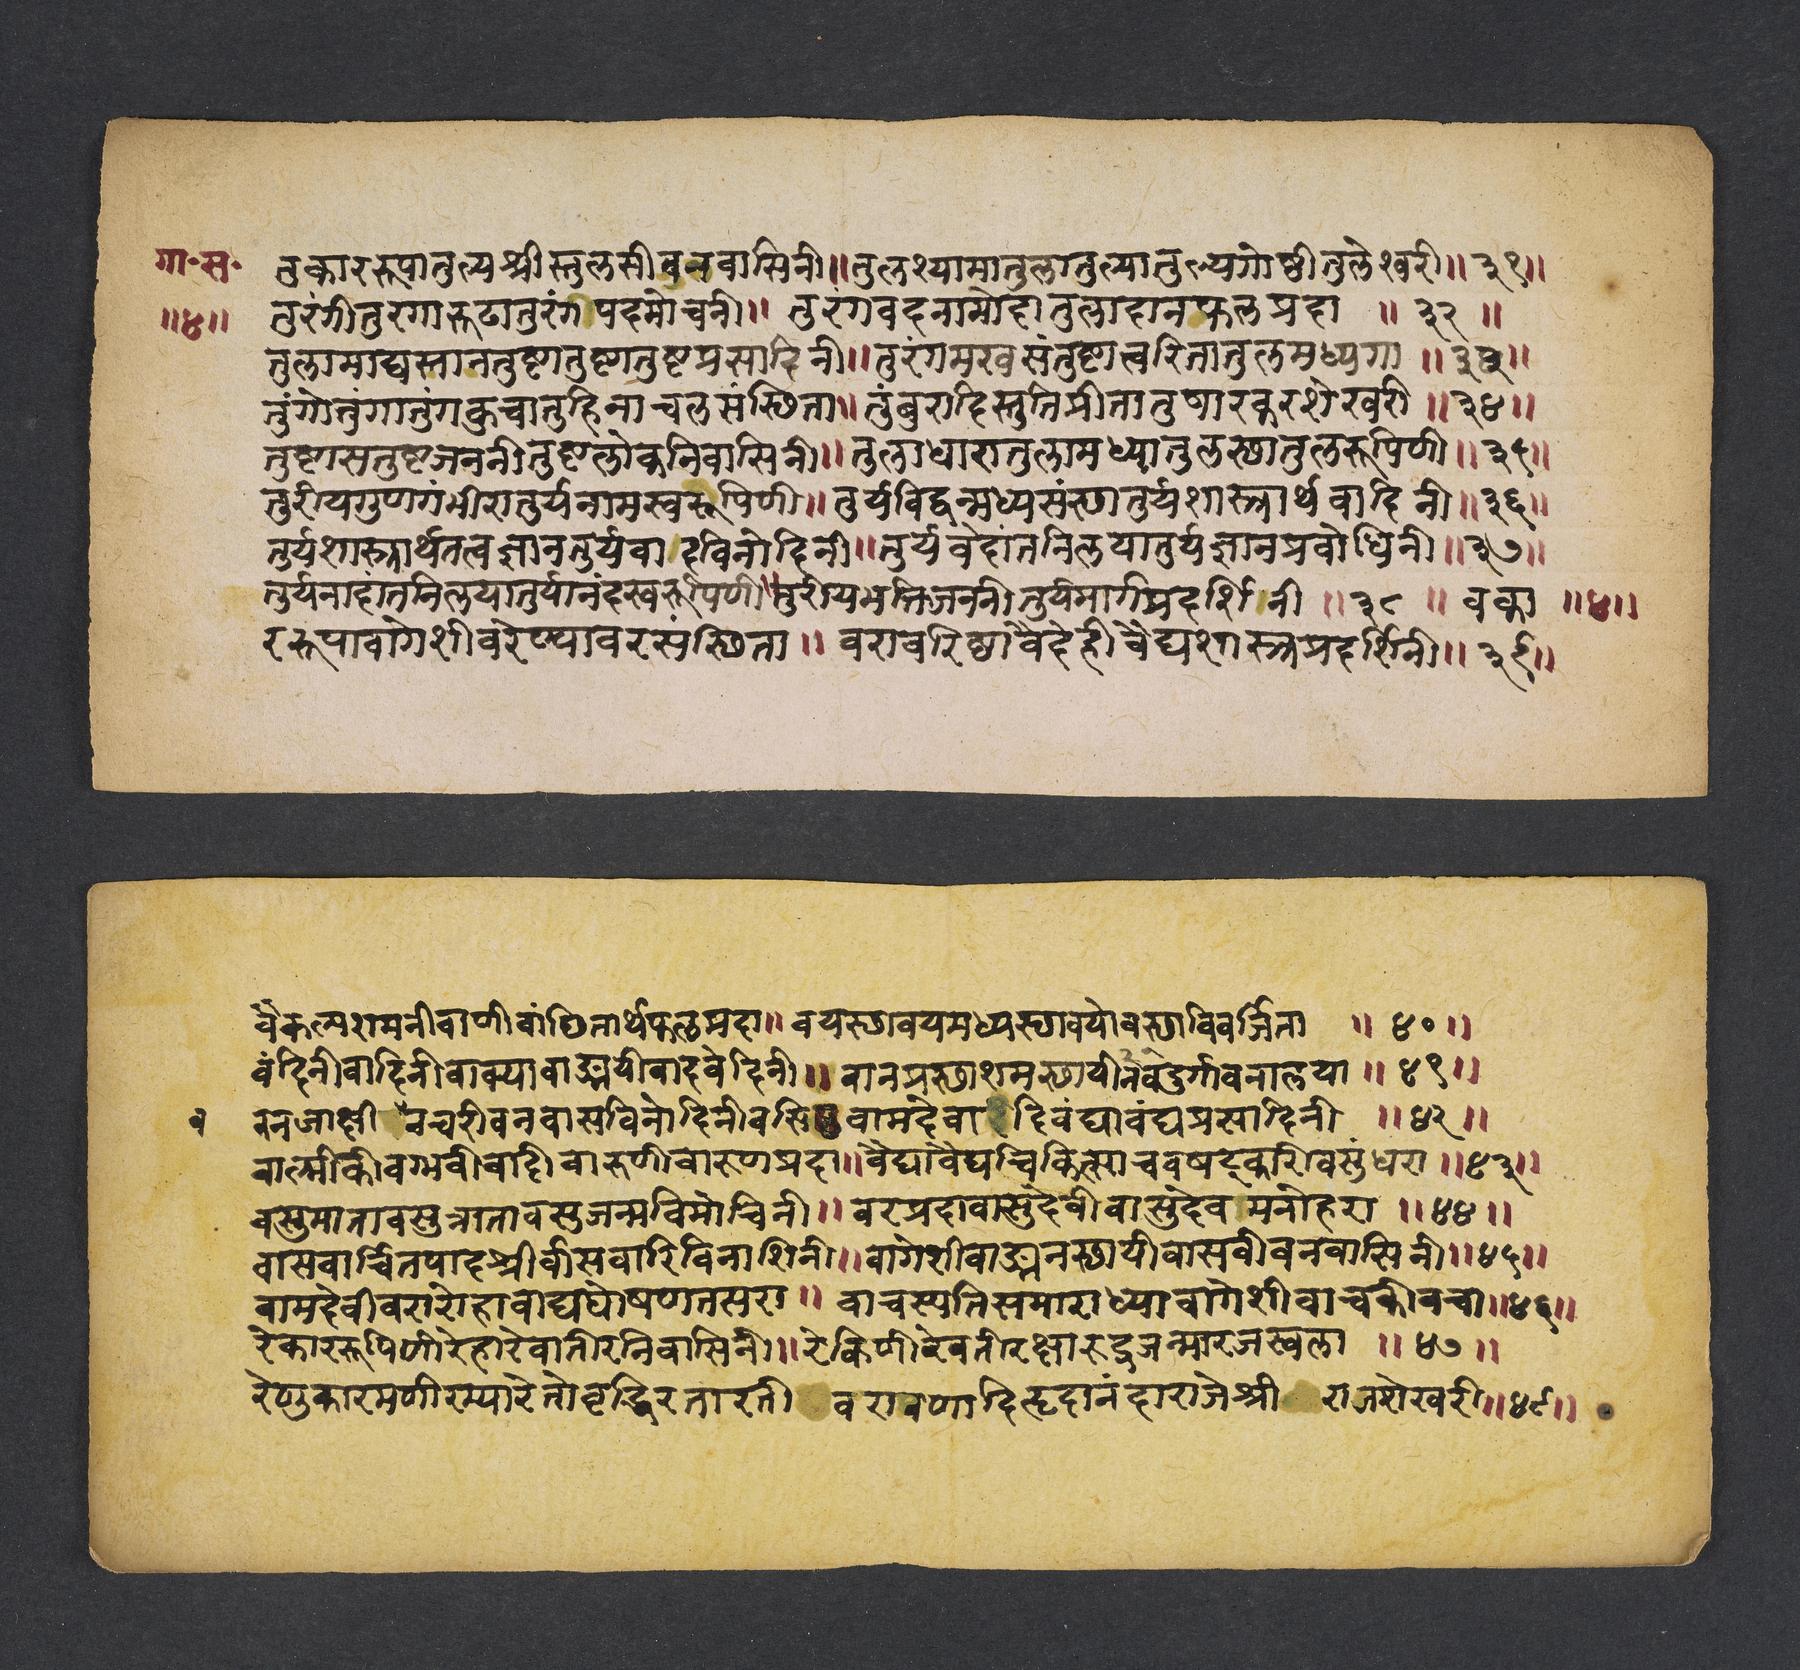 गा॰स॰ तुकाररूपातुल्यश्रीस्तुलसीवनवासिनी॥तुलश्यामातुलातुल्यातुल्यगोष्ठीतुलेश्वरी॥३१॥
॥४॥ तुरंगीतुरगारूढातुरंगीपदमोचनी॥ तुरंगवदनामोदातुलादानफलप्रदा ॥ ३२ ॥
तुलामाघस्नानतुष्टातुष्टातुष्टप्रसादिनी॥तुरंगमखसंतुष्टात्वरितातुलमध्यगा ॥३३॥
तुंगोत्तुंगातुंगकुचातुहिनाचलसंस्थिता॥तुंबुरादिस्तुतिप्रीतातुषारकरशेखरी ॥३४॥
तुष्टासतुष्टजननीतुष्टलोकनिवासिनी॥तुलाधारातुलामध्यातुलस्थातुलरूपिणी॥३५॥
तुरीयगुणगंभीरातुर्यनामस्वरूपिणी॥तुर्यविद्वन्मध्यसंस्थातुर्यशास्त्रार्थवादिनी॥३६॥
तुर्यशास्त्रार्थतत्वज्ञानतुर्यवादविनोदिनी॥तुर्यवेदांतनिलयातुर्यज्ञानप्रबोधिनी॥३७॥
तुर्यनादांतनिलयातुर्यानंदस्वरूपिणी॥तुरीयभक्तिजननीतुर्यमार्गप्रदर्शिनी ॥३८॥ वका ॥४॥
ररूपावागेशीवरेण्यावरसंस्थिता॥ वरावरिष्ठावैदेहीवैद्यशास्त्रप्रदर्शिनी॥ ३९॥
वैकल्पशमनीवाणीवांछितार्थफलप्रदा॥वयस्थावयमध्यस्थावयोवस्थाविवर्जिता ॥ ४०॥
वंदिनीवादिनीवाक्यावाङ्मयीवादवेदिनी॥वानप्रस्थाश्रमस्थायीनवदुर्गावनालया॥४१॥
व वनजाक्षी वनचरीवनवासविनोदिनीवसिष्ठवामदेवादिवंद्यावंद्यप्रसादिनी ॥४२॥
वाल्मीकीवग्भवीवादीवारुणीवारुणप्रदा॥वैद्यावैद्यचिकित्साचवषट्कारीवसुंधरा॥४३॥
वसुमातावसुत्रातावसुजन्मविमोचिनी॥वरप्रदावासुदेवीवासुदेवमनोहरा ॥४४॥
वासवार्चितपादश्रीर्वासवारिविनाशिनी॥वागेशीवाङ्मनस्थायीवासवीवनवासिनी॥४५॥
वामदेवीवरारोहावाद्यघोषणतत्परा॥ वाचस्पतिसमाराध्यावागेशीवाचकीवचा॥४६॥
रेकाररूपिणीरेहारेवातीरनिवासिनी॥रेकिणीरेवतीरक्षारुद्रजन्मारजस्वला ॥ ४७ ॥
रेणुकारमणीरम्यारेतोवृद्धिरतारती वरावणादिहृदानंदाराजेश्री राजशेखरी॥४८॥